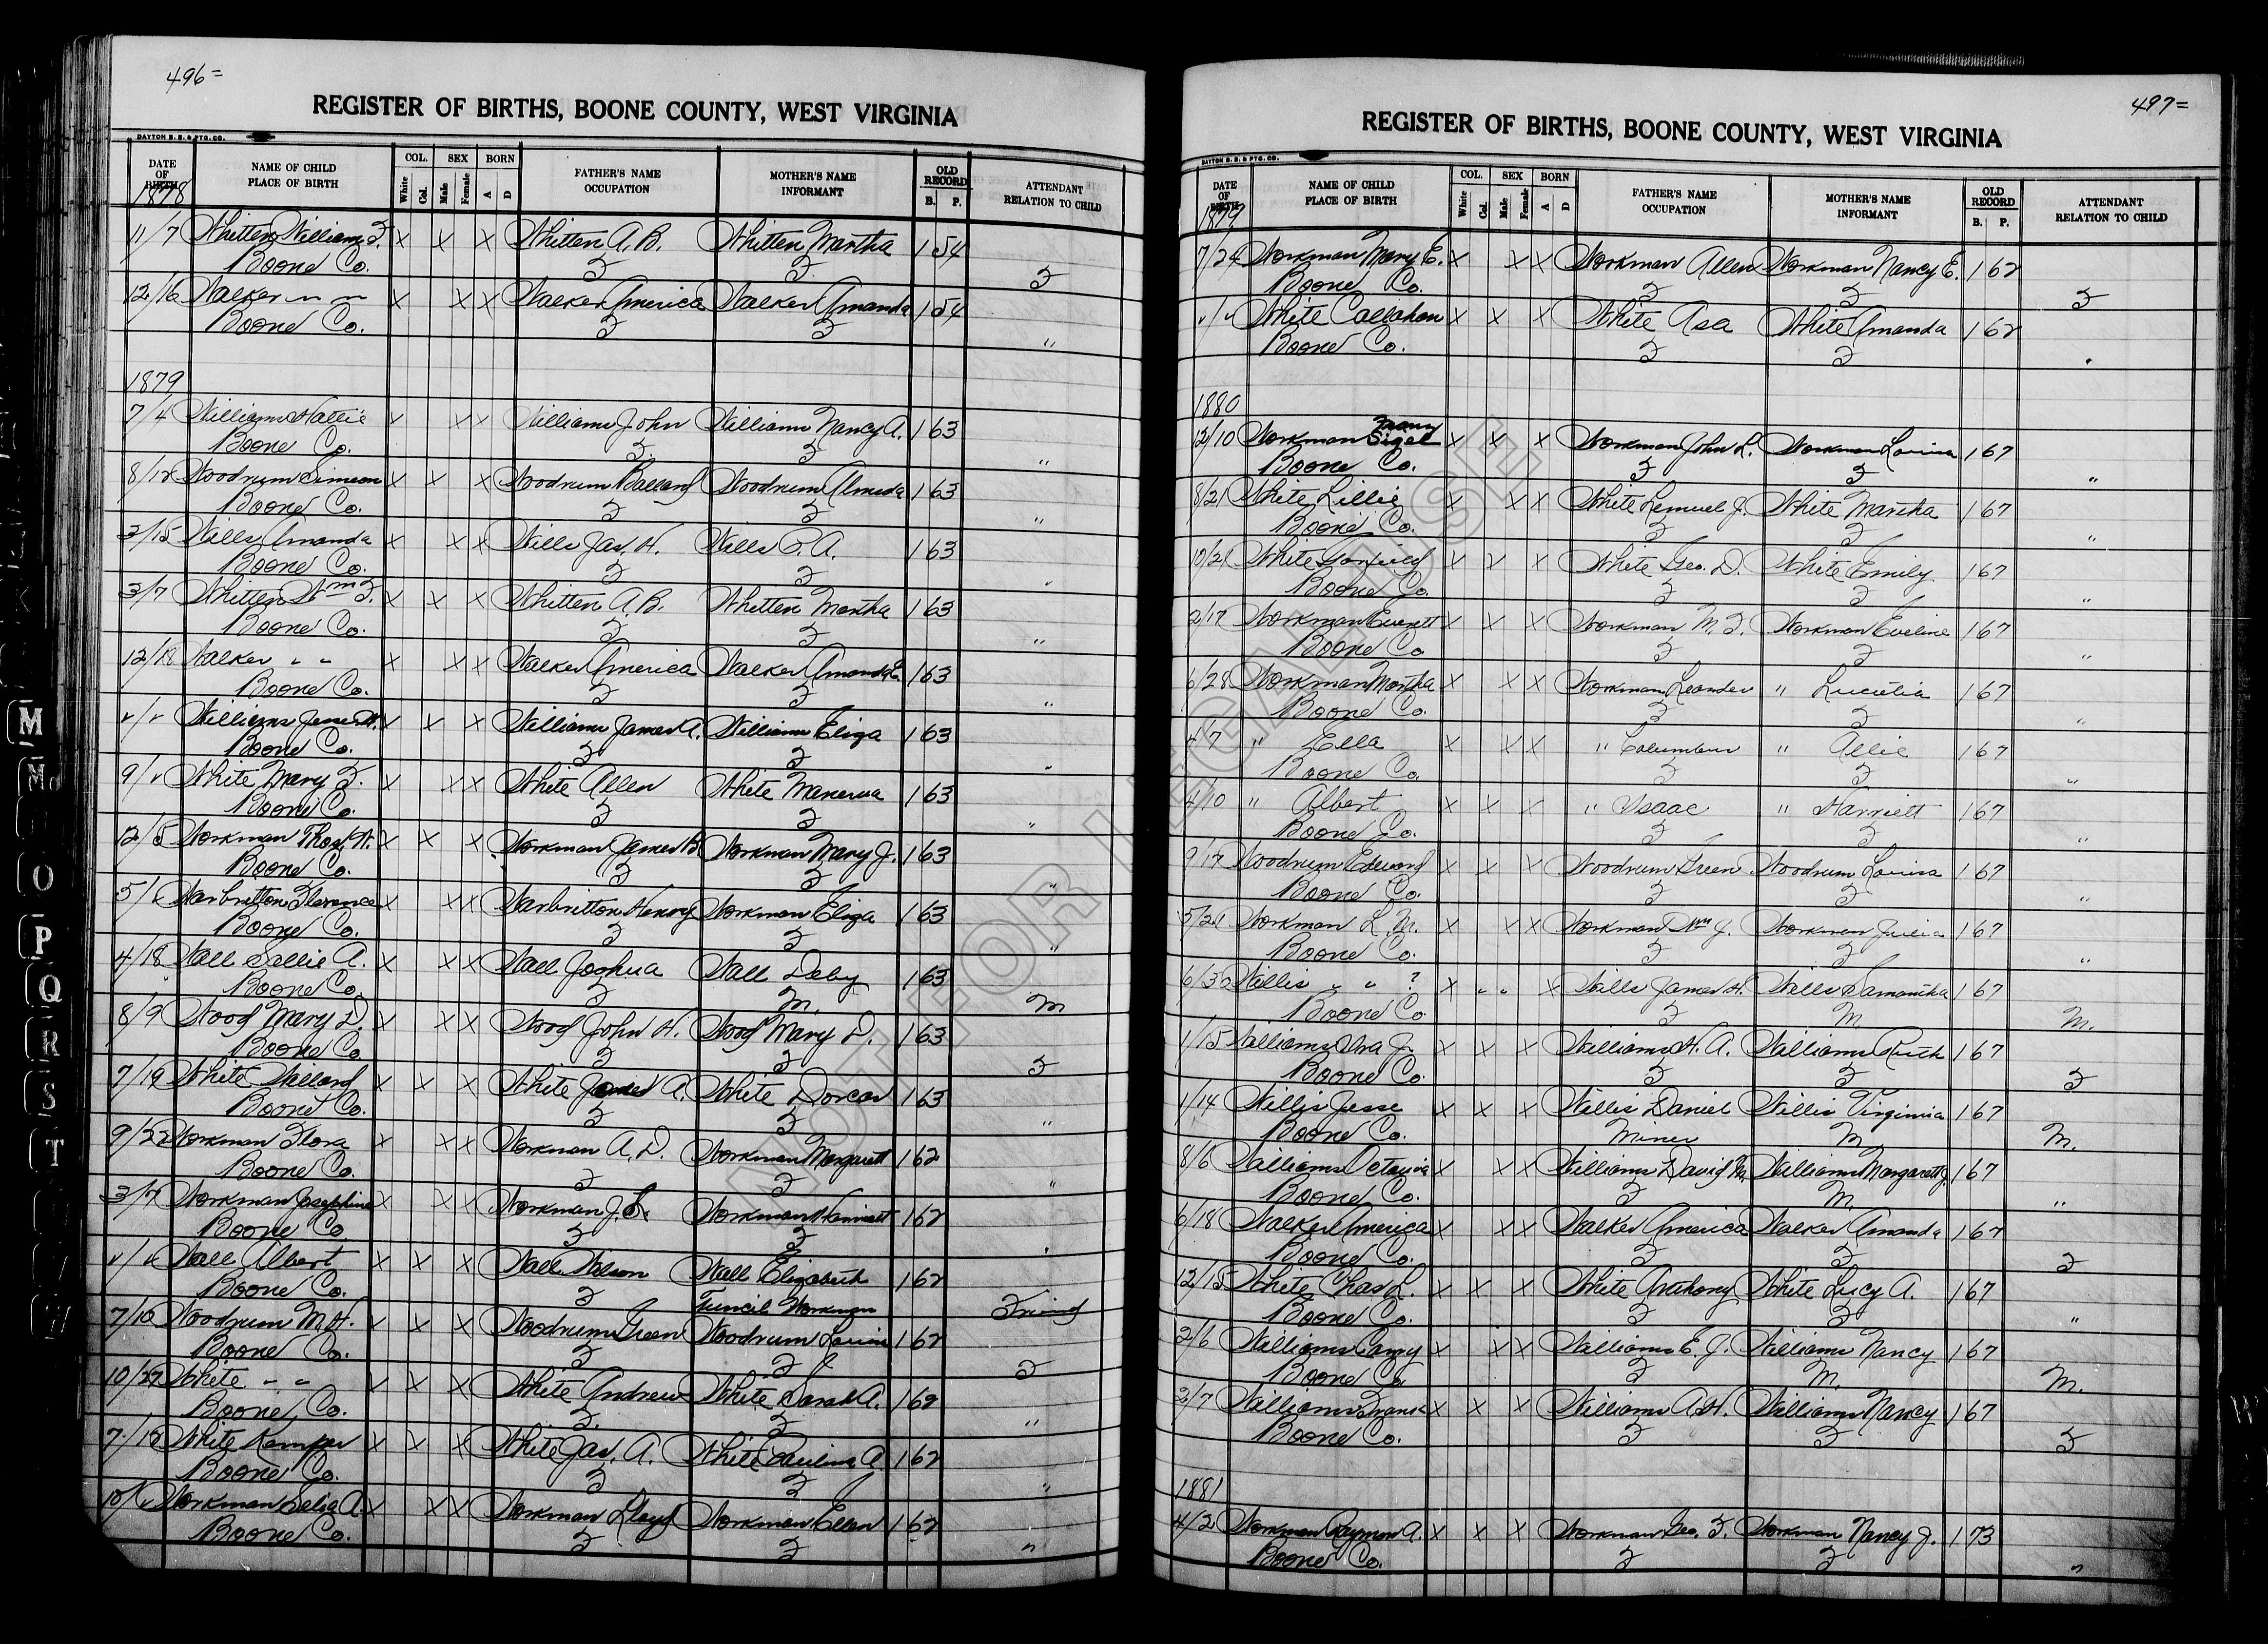 496=
REGISTER OF BIRTHS, BOONE COUNTY, WEST VIRGINIA
DAYTON B. B. & PTG. CO.
DATE OF BIRTH NAME OF CHILD PLACE OF BIRTH COL. White Col. SEX Male Female BORN A D FATHER'S NAME OCCUPATION MOTHER'S NAME INFORMANT OLD RECORD B. P. ATTENDANT RELATION TO CHILD
1878
11/7 Whitten William F. x x x Whitten A. B. Whitten Martha 1 54
Boone Co. F F F
12/16 Walker " " x x x Walker America Walker Amanda 1 54
Boone Co. F F "
1879
7/4 Williams Hattie x x x Williams John Williams Nancy A. 1 63
Boone Co. F F "
8/12 Woodrum Simeon x x x Woodrum Ballard Woodrum Almeda 1 63
Boone Co. F F "
3/15 Wills Amanda x x x Wills Jas. H. Wills S. A. 1 63
Boone Co. F F "
3/7 Whitten Wm F. x x x Whitten A. B. Whitten Martha 1 63
Boone Co. F F "
12/18 Walker " " x x x Walker America Walker Amanda E. 1 63
Boone Co. F F "
"/" Williams Jesse x x x Williams James A. Williams Eliza 1 63
Boone Co. F F "
9/" White Mary F. x x x White Allen White Manerva 1 63
Boone Co. F F "
12/5 Workman Thos. H. x x x Workman James B. Workman Mary J. 1 63
Boone Co. F F "
5/" Warbritton Florence x x x Warbritton Henry Workman Eliza 1 63
Boone Co. F F "
4/18 Wall Sallie A. x x x Wall Joshua Wall Deby 1 63
Boone Co. F M. M
8/9 Wood Mary D. x x x Wood John H. Wood Mary D. 1 63
Boone Co. F F F
7/19 White Willard x x x White James A. White Dorcas 1 63
Boone Co. F F "
9/22 Workman Flora x x x Workman A. D. Workman Margarett 1 62
Boone Co. F F "
3/7 Workman Josephine x x x Workman J. L. Workman Harriett 1 62
Boone Co. F F "
"/" Wall Albert x x x Wall Nelson Wall Elizabeth 1 62
Boone Co. F Funcil Workman Friend
7/10 Woodrum M. H. x x x Woodrum Green Woodrum Louisa 1 62
Boone Co. F F F
10/27 White " " x x x White Andrew White Sarah A. 1 62
Boone Co. F. F "
7/12 White Kemper x x x White Jas. A. White Paulina A. 1 62
Boone Co. F F "
10/" Workman Celia A. x x x Workman Lloyd Workman Ellen 1 62
Boone Co. F F "
497=
REGISTER OF BIRTHS, BOONE COUNTY, WEST VIRGINIA
DAYTON B. B. & PTG. CO.
DATE OF BIRTH NAME OF CHILD PLACE OF BIRTH COL. White Col. SEX Male Female BORN A D FATHER'S NAME OCCUPATION MOTHER'S NAME INFORMANT OLD RECORD B. P. ATTENDANT RELATION TO CHILD
1879
7/24 Workman Mary E. x x x Workman Allen Workman Nancy E. 1 62
Boone Co. F F F
"/" White Callahan x x x White Asa White Amanda 1 62
Boone Co. F F "
1880
12/10 Workman Sigel x x x Workman John L. Workman Lovina 1 67
Boone Co. F F "
8/21 White Lillie x x x White Lemuel J. White Martha 1 67
Boone Co. F F "
10/21 White Garfield x x x White Geo. D. White Emily 1 67
Boone Co. F F "
2/17 Workman Everett x x x Workman M. F. Workman Eveline 1 67
Boone Co F F "
6/28 Workman Martha x x x Workman Leander " Lucretia 1 67
Boone Co. F F "
4/7 " Ella x x x " Columbus " Allie 1 67
Boone Co. F F "
4/10 " Albert x x x " Isaac " Harriett 1 67
Boone Co. F F "
9/17 Woodrum Edward x x x Woodrum Green Woodrum Louisa 1 67
Boone Co. F F "
5/21 Workman L. M. x x x Workman Wm J. Workman Julia 1 67
Boone Co. F F "
6/30 Willis " " ? x " " x Wills James H. Wills Samantha 1 67
Boone Co F M M.
1/15 Williams Ira J. x x x Williams H. A. Williams Ruth 1 67
Boone Co. F F F
1/14 Willis Jesse x x x Willis Daniel Willis Virginia 1 67
Boone Co. Miner M M.
8/6 Williams Octavia x x x Williams David M. Williams Margaret J. 1 67
Boone Co. F M. "
6/18 Walker America x x x Walker America Walker Amanda 1 67
Boone Co. F F F
12/15 White Chas L. x x x White Anthony White Lucy A. 1 67
Boone Co. F F "
2/6 Williams x x x Williams E. J. Williams Nancy 1 67
Boone Co F M. M.
3/7 Williams Frank x x x Williams A. H. Williams Nancy 1 67
Boone Co. F F F
1881
4/2 Workman Raymon A. x x x Workman Geo. F. Workman Nancy J. 1 73
Boone Co. F F "
NOT FOR LEGAL USE
M
O
P
Q
R
S
T
W